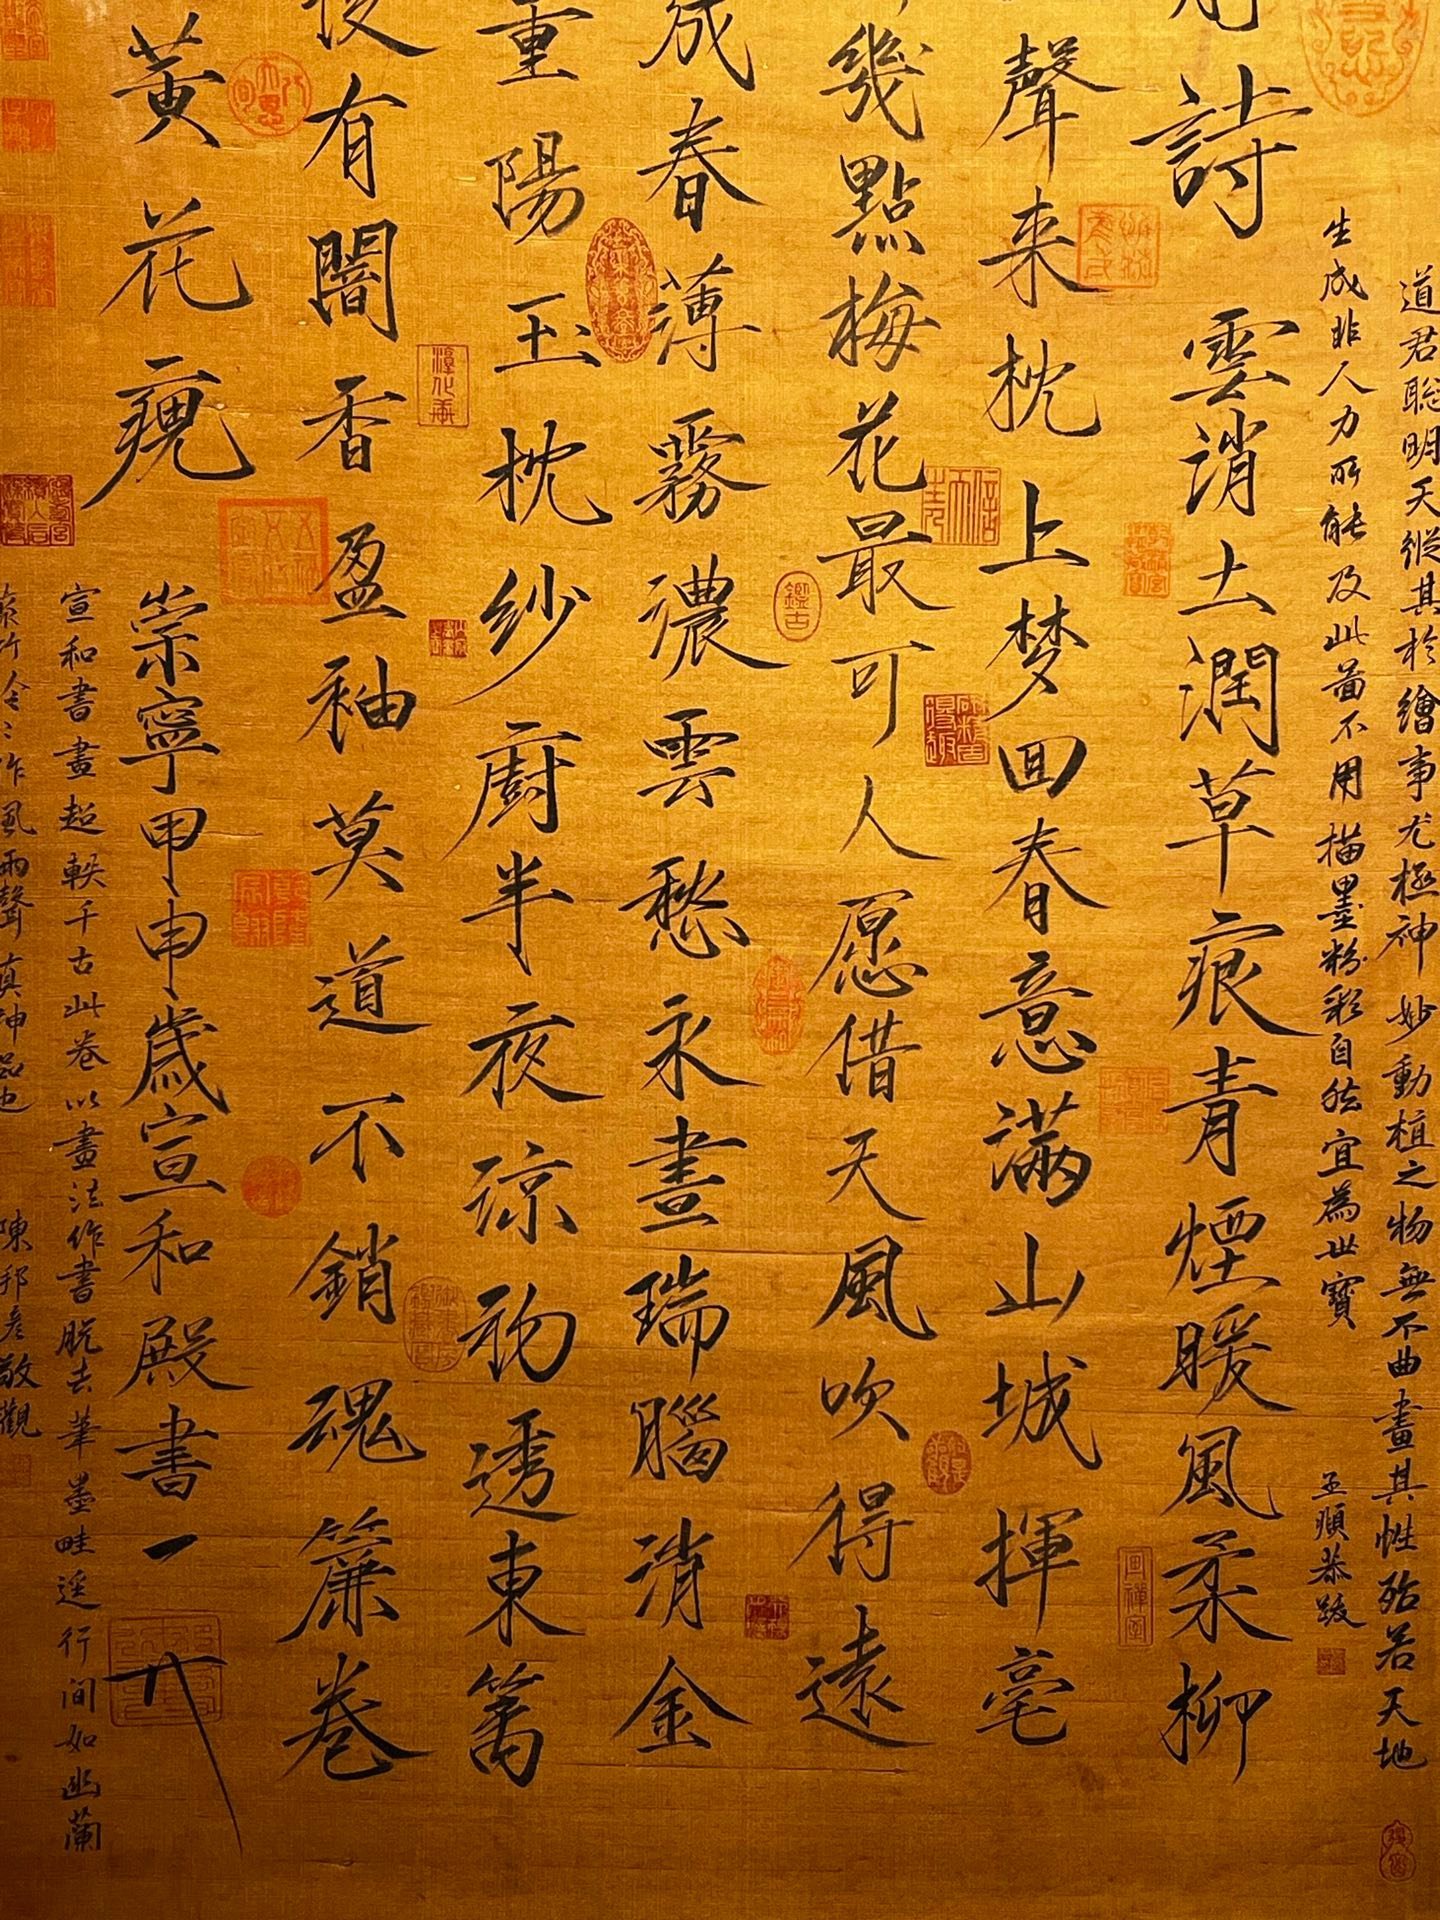 道君聪明天縱其於繪事尤極神妙動植之物無不曲畫其性殆若天地
生成非人力所能及此畵不用描墨粉彩自然宜為世寶
王順恭跋
詩 雲消土潤草痕青煙暖風柔柳
聲来枕上梦回春意滿山城揮毫
幾點梅花最可人愿借天風吹得遠
成春薄霧濃雲愁永晝瑞腦消金
重陽玉枕紗廚半夜涼初透東篱
後有闇香盈袖莫道不銷魂簾卷
黃花瘦 崇寧甲申歲宣和殿書一
宣和書畫超軼千古此卷以畫法作書脱去筆墨畦逕行間如幽蘭
叢竹泠〻作風雨聲真神品也 陳邦彦敬觀
淳化軒
鑑古
信天主人